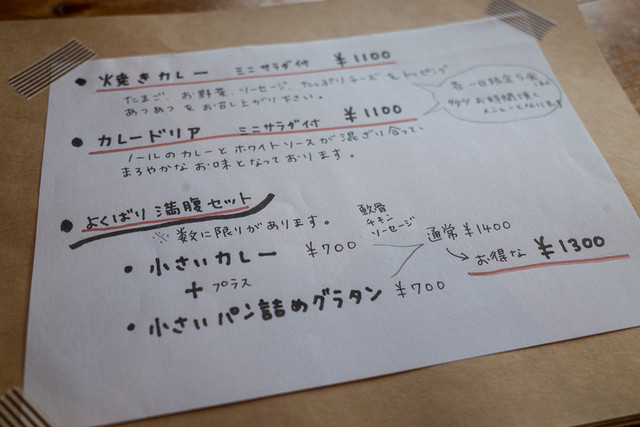 • 火焼きカレー ミニサラダ付 ¥1100
たまご、お野菜、ソーセージ、たっぷりチーズをトッピング
あつあつをお召し上がり下さい。
各一日限定5食。
お時間頂く
メニューとなります
• カレードリア ミニサラダ付 ¥1100
ノールのカレーとホワイトソースが混ざり合って、
まろやかなお味となっております。
• よくばり満腹セット
※数に限りがあります。
• 小さいカレー ¥700
軟骨
チキン
ソーセージ
+ プラス
• 小さいパン詰めグラタン ¥700
通常¥1400
お得な ¥1300